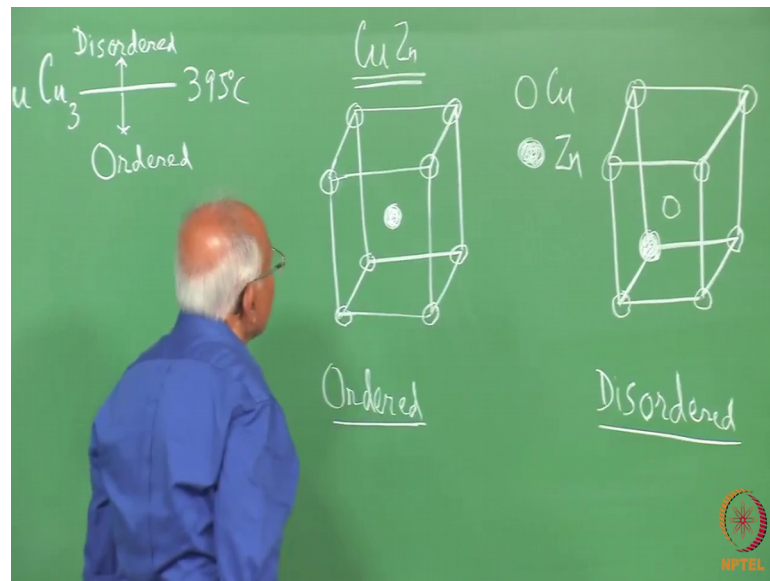 Disordered
u Cu3 395°C
Ordered
CuZn
Cu
Zn
Ordered
Disordered
NPTEL